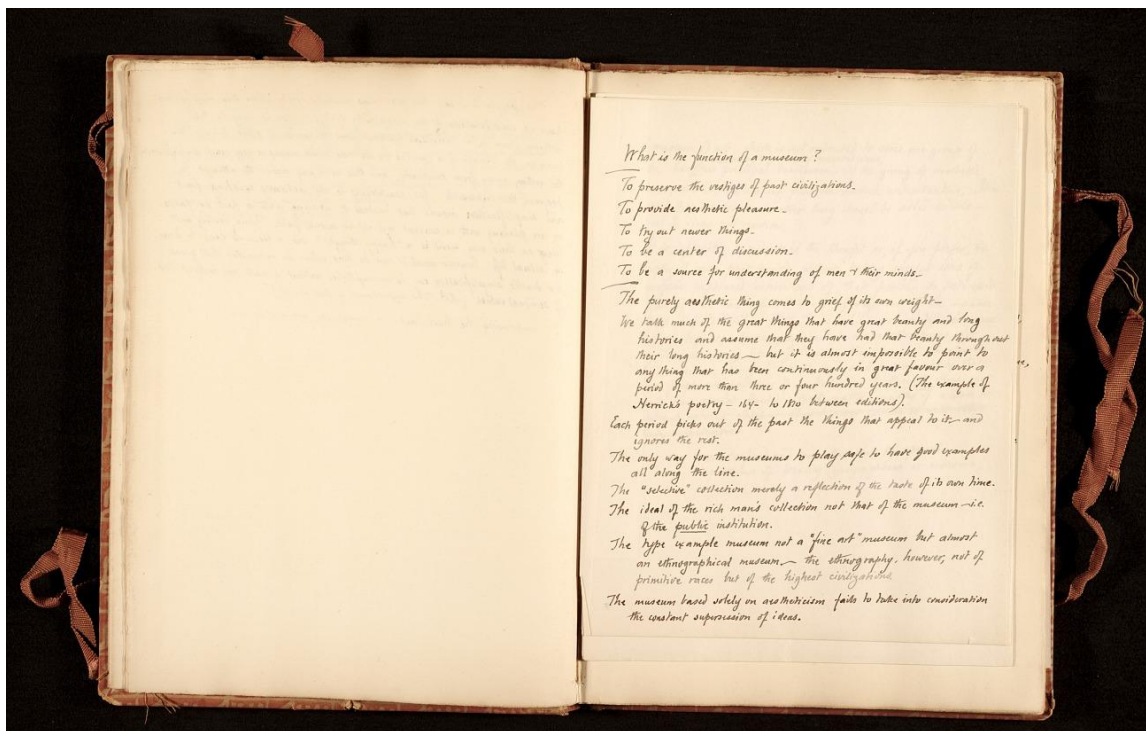 What is the function of a museum?
To preserve the vestiges of past civilizations.
To provide aesthetic pleasure.
To try out newer things.
To be a center of discussion.
To be a source for understanding of men & their minds.
The purely aesthetic thing comes to grief of its own weight—
We talk much of the great things that have great beauty and long
histories and assume that they have had that beauty throughout
their long histories — but it is almost impossible to point to
anything that has been continuously in great favour over a
period of more than three or four hundred years. (The example of
Herrick's poetry – 164– to 1810 between editions).
Each period picks out of the past the things that appeal to it — and
ignores the rest.
The only way for the museums to play safe to have good examples
all along the line.
The "selective" collection merely a reflection of the taste of its own time.
The ideal of the rich man's collection not that of the museum — i.e.
of the public institution.
The type example museum not a "fine art" museum but almost
an ethnographical museum — the ethnography, however, not of
primitive races but of the highest civilizations
The museum based solely on aestheticism fails to take into consideration
the constant supersession of ideas.